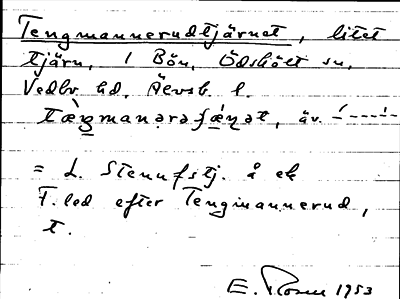 Tengmannerudtjärnet, litet
tjärn, i Bön, Ödskölt sn,
Vedbo hd, Älvsb. l.
tæ̀ŋmanərəʃǽɳət, äv.
= L. Stennfstj. å ek
F. led efter Tengmannerud,
t.
E. Rosen 1953